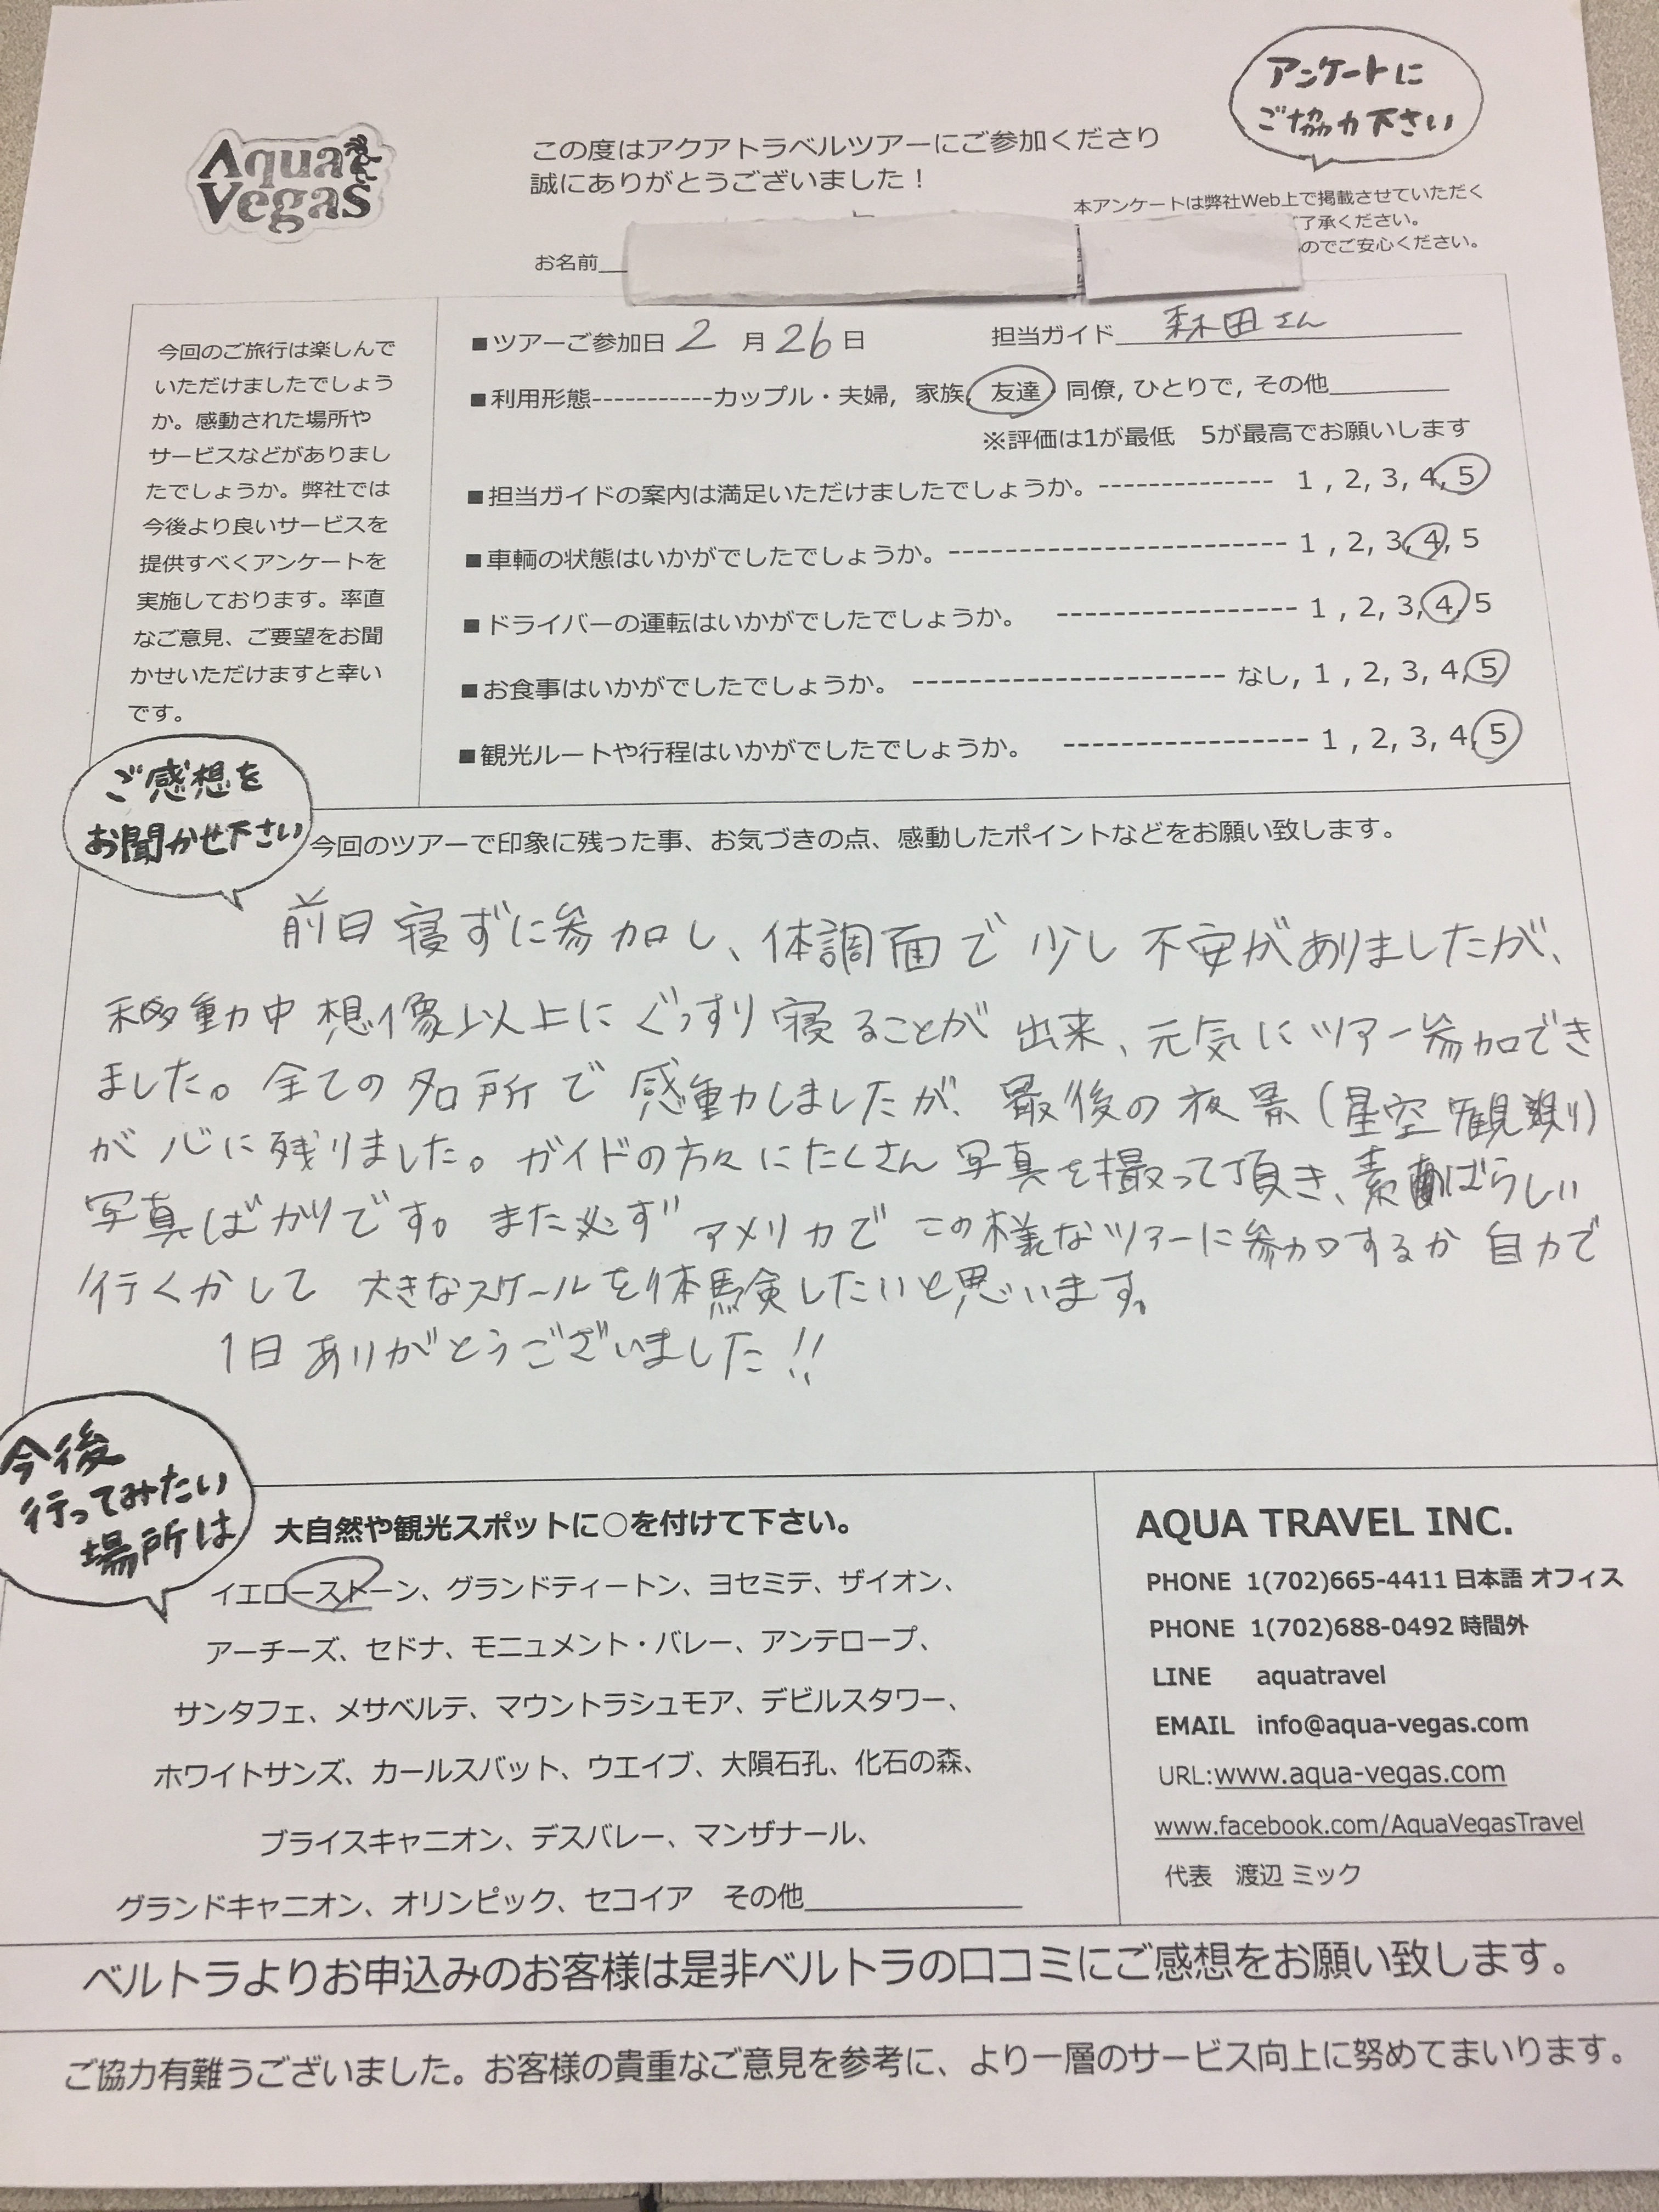 アンケートに
ご協力下さい
Aqua
Vegas
この度はアクアトラベルツアーにご参加くださり
誠にありがとうございました！
本アンケートは弊社Web上で掲載させていただく
了承ください。
のでご安心ください。
お名前
今回のご旅行は楽しんで
いただけましたでしょう
か。感動された場所や
サービスなどがありまし
たでしょうか。弊社では
今後より良いサービスを
提供すべくアンケートを
実施しております。率直
なご意見、ご要望をお聞
かせいただけますと幸い
です。
■ツアーご参加日 2 月 26 日 担当ガイド 森田さん
■利用形態-----------カップル・夫婦, 家族, 友達, 同僚, ひとりで, その他
※評価は1が最低 5が最高でお願いします
■担当ガイドの案内は満足いただけましたでしょうか。------------- 1 , 2, 3, 4, 5
■車輌の状態はいかがでしたでしょうか。------------------------- 1 , 2, 3, 4, 5
■ドライバーの運転はいかがでしたでしょうか。 ------------------ 1 , 2, 3, 4, 5
■お食事はいかがでしたでしょうか。 ----------------------- なし, 1 , 2, 3, 4, 5
■観光ルートや行程はいかがでしたでしょうか。 ------------------ 1 , 2, 3, 4, 5
ご感想を
お聞かせ下さい
今回のツアーで印象に残った事、お気づきの点、感動したポイントなどをお願い致します。
前日寝ずに参加し、体調面で少し不安がありましたが、
移動中想像以上にぐっすり寝ることが出来、元気にツアー参加でき
ました。全ての名所で感動しましたが、最後の夜景(星空観測)
が心に残りました。ガイドの方々にたくさん写真を撮って頂き、素晴ばらしい
写真ばかりです。また必ずアメリカでこの様なツアーに参加するか自力で
行くかして大きなスケールを体験したいと思います。
1日ありがとうございました!!
今後
行ってみたい
場所は
大自然や観光スポットに○を付けて下さい。
イエローストーン、グランドティートン、ヨセミテ、ザイオン、
アーチーズ、セドナ、モニュメント・バレー、アンテロープ、
サンタフェ、メサベルテ、マウントラシュモア、デビルスタワー、
ホワイトサンズ、カールスバット、ウエイブ、大隕石孔、化石の森、
ブライスキャニオン、デスバレー、マンザナール、
グランドキャニオン、オリンピック、セコイア その他
AQUA TRAVEL INC.
PHONE 1(702)665-4411 日本語 オフィス
PHONE 1(702)688-0492 時間外
LINE aquatravel
EMAIL info@aqua-vegas.com
URL:www.aqua-vegas.com
www.facebook.com/AquaVegasTravel
代表 渡辺 ミック
ベルトラよりお申込みのお客様は是非ベルトラの口コミにご感想をお願い致します。
ご協力有難うございました。お客様の貴重なご意見を参考に、より一層のサービス向上に努めてまいります。